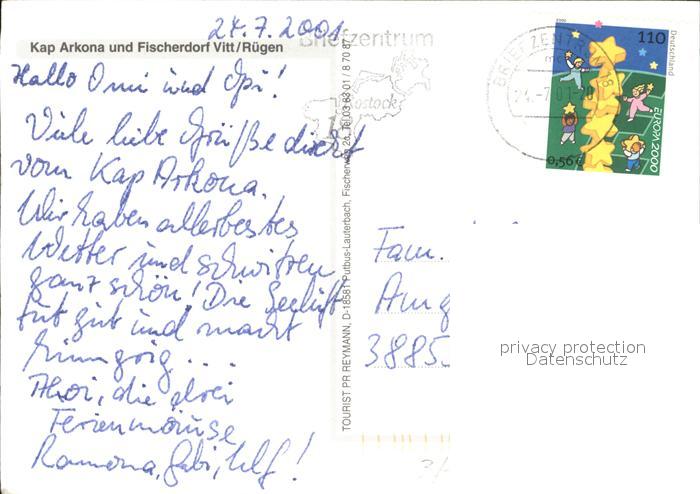 24.7.2001
Kap Arkona und Fischerdorf Vitt/Rügen
Hallo Omi und Opi!
Viele liebe Grüße direkt
vom Kap Arkona.
Wir haben allerbestes
Wetter und schwitzen
ganz schön! Die Seeluft
tut gut und macht
hungrig...
Ahoi, die drei
Ferienmäuse
Ramona, Gabi, Ulf!
TOURIST PR REYMANN, D-18581 Putbus-Lauterbach, Fischerweg 2c, Tel 03 83 01 / 8 70 87
Briefzentrum
Rostock
BRIEFZENTRUM
24.-7.01-20
18
2000
110
Deutschland
EUROPA 2000
0,56 €
Fam.
Am
3885
privacy protection
Datenschutz